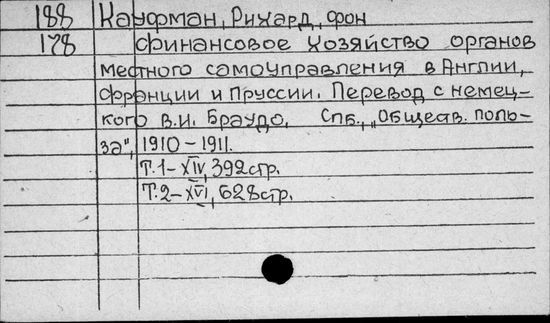 188 Кауфман, Рихард, фон
178 Финансовое хозяйство органов
местного самоуправления в Англии,
Франции и Пруссии. Перевод с немец-
кого В.И. Браудо. Спб., „Обществ. поль-
за", 1910-1911.
Т.1-XIV, 392стр.
Т.2-XVI, 628стр.